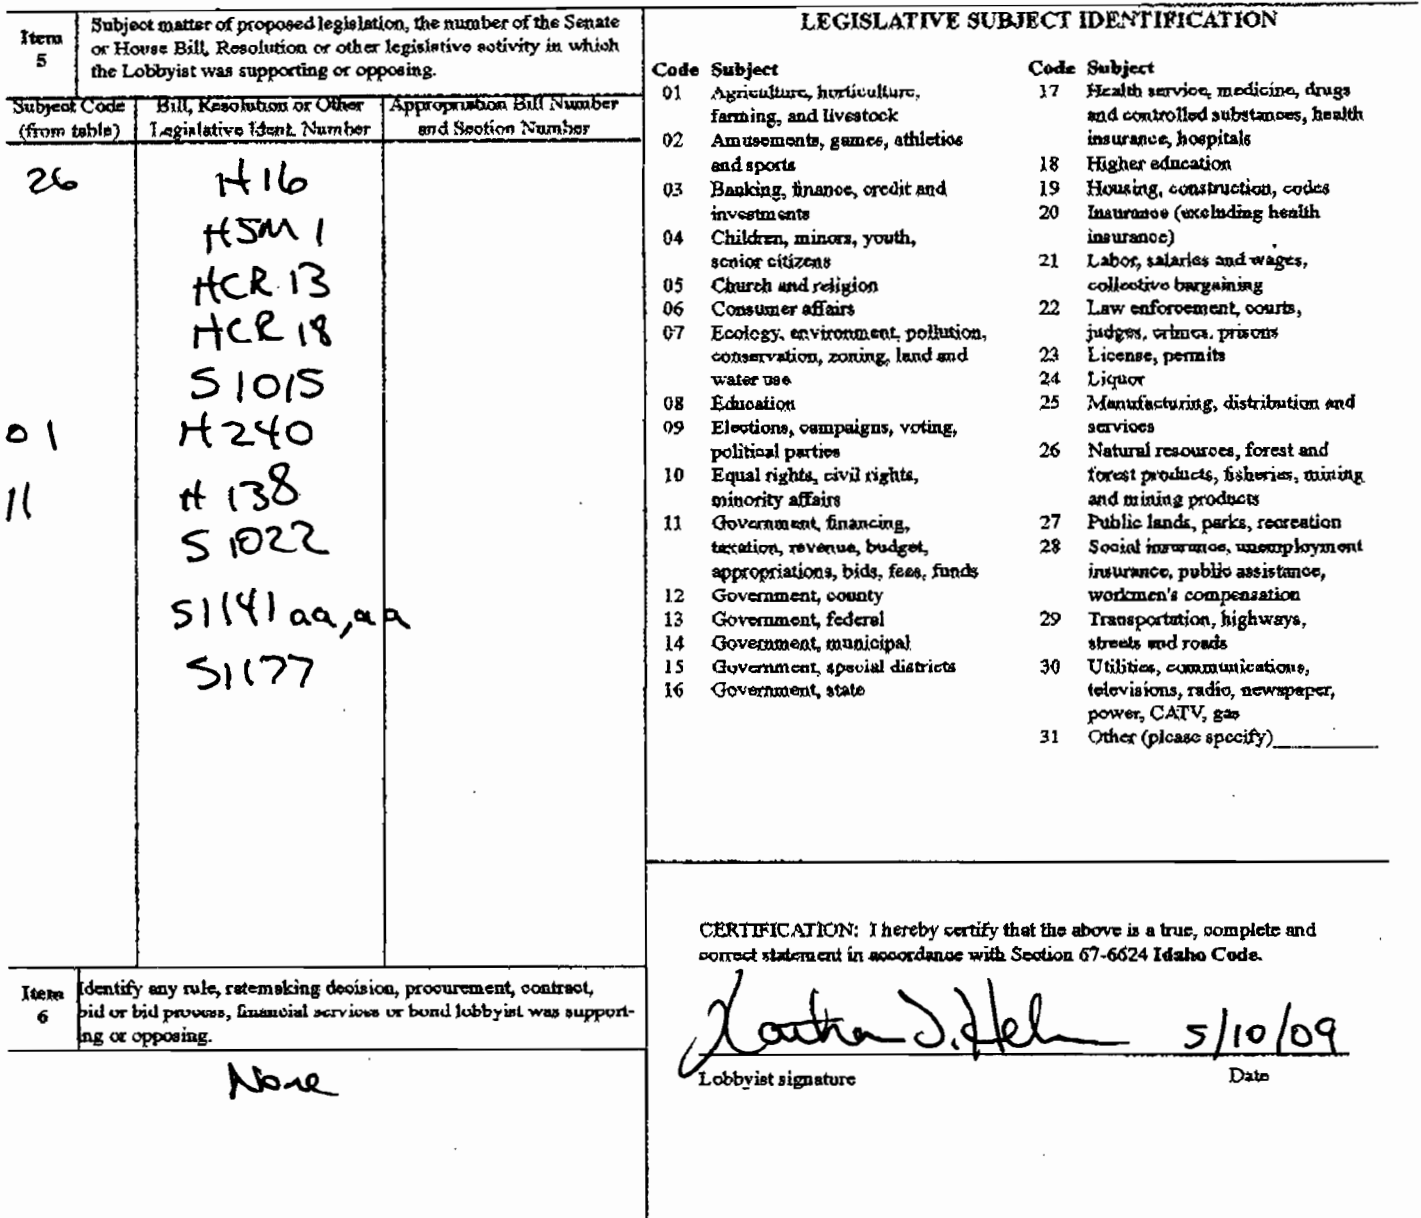 Item 5
Subject matter of proposed legislation, the number of the Senate
or House Bill, Resolution or other legislative activity in which
the Lobbyist was supporting or opposing.
Subject Code (from table)
Bill, Resolution or Other Legislative Ident. Number
Appropriation Bill Number and Section Number
26 H16
HJM 1
HCR 13
HCR 18
S 1015
01 H240
11 H 138
S 1022
S1141 aa, aa
S1177
Item 6
Identify any rule, ratemaking decision, procurement, contract,
bid or bid process, financial services or bond lobbyist was support-
ing or opposing.
None
LEGISLATIVE SUBJECT IDENTIFICATION
Code Subject
01 Agriculture, horticulture,
farming, and livestock
02 Amusements, games, athletics
and sports
03 Banking, finance, credit and
investments
04 Children, minors, youth,
senior citizens
05 Church and religion
06 Consumer affairs
07 Ecology, environment, pollution,
conservation, zoning, land and
water use
08 Education
09 Elections, campaigns, voting,
political parties
10 Equal rights, civil rights,
minority affairs
11 Government, financing,
taxation, revenue, budget,
appropriations, bids, fees, funds
12 Government, county
13 Government, federal
14 Government, municipal
15 Government, special districts
16 Government, state
Code Subject
17 Health service, medicine, drugs
and controlled substances, health
insurance, hospitals
18 Higher education
19 Housing, construction, codes
20 Insurance (excluding health
insurance)
21 Labor, salaries and wages,
collective bargaining
22 Law enforcement, courts,
judges, crimes, prisons
23 License, permits
24 Liquor
25 Manufacturing, distribution and
services
26 Natural resources, forest and
forest products, fisheries, mining
and mining products
27 Public lands, parks, recreation
28 Social insurance, unemployment
insurance, public assistance,
workmen's compensation
29 Transportation, highways,
streets and roads
30 Utilities, communications,
televisions, radio, newspaper,
power, CATV, gas
31 Other (please specify)
CERTIFICATION: I hereby certify that the above is a true, complete and
correct statement in accordance with Section 67-6624 Idaho Code.
5/10/09
Lobbyist signature Date